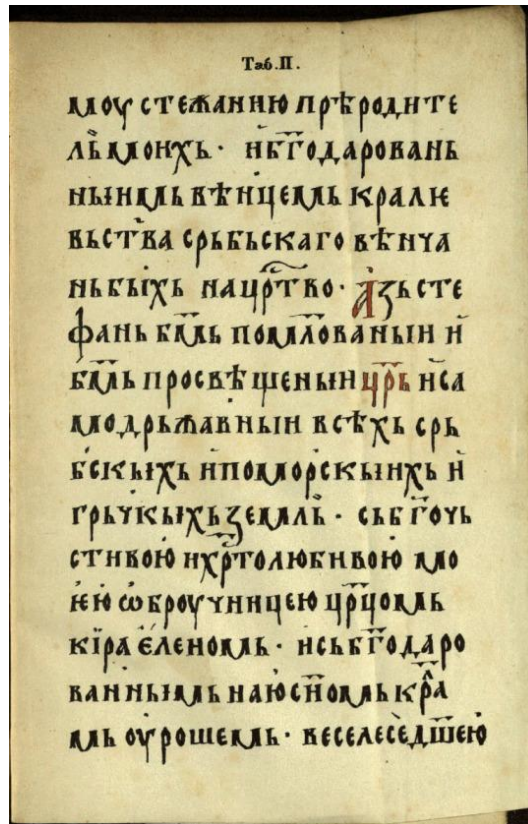 Таб. II.
моу стежанию прѣродите
льмоихь · и б҃годаровань
ныимь вѣнцемь кралѥ
вьства срьбьскаго вѣнча
нь быхь на цр҃тво · Азь сте
фань б҃мь помл҃ованыи и
б҃мь просвѣщеныи цр҃ь и са
модрьжавныи всѣхь срь
бскыхь и поморскыихь и
грьчкыхь земль · сь б҃гочь
стивою и хр҃толюбивою мо
ѥю ѡброучницею цр҃цомь
кїра єленомь · и сь б҃годаро
ванным͏ь наю сн҃омь кр҃а
мь оурошемь · веселеседш҃ею